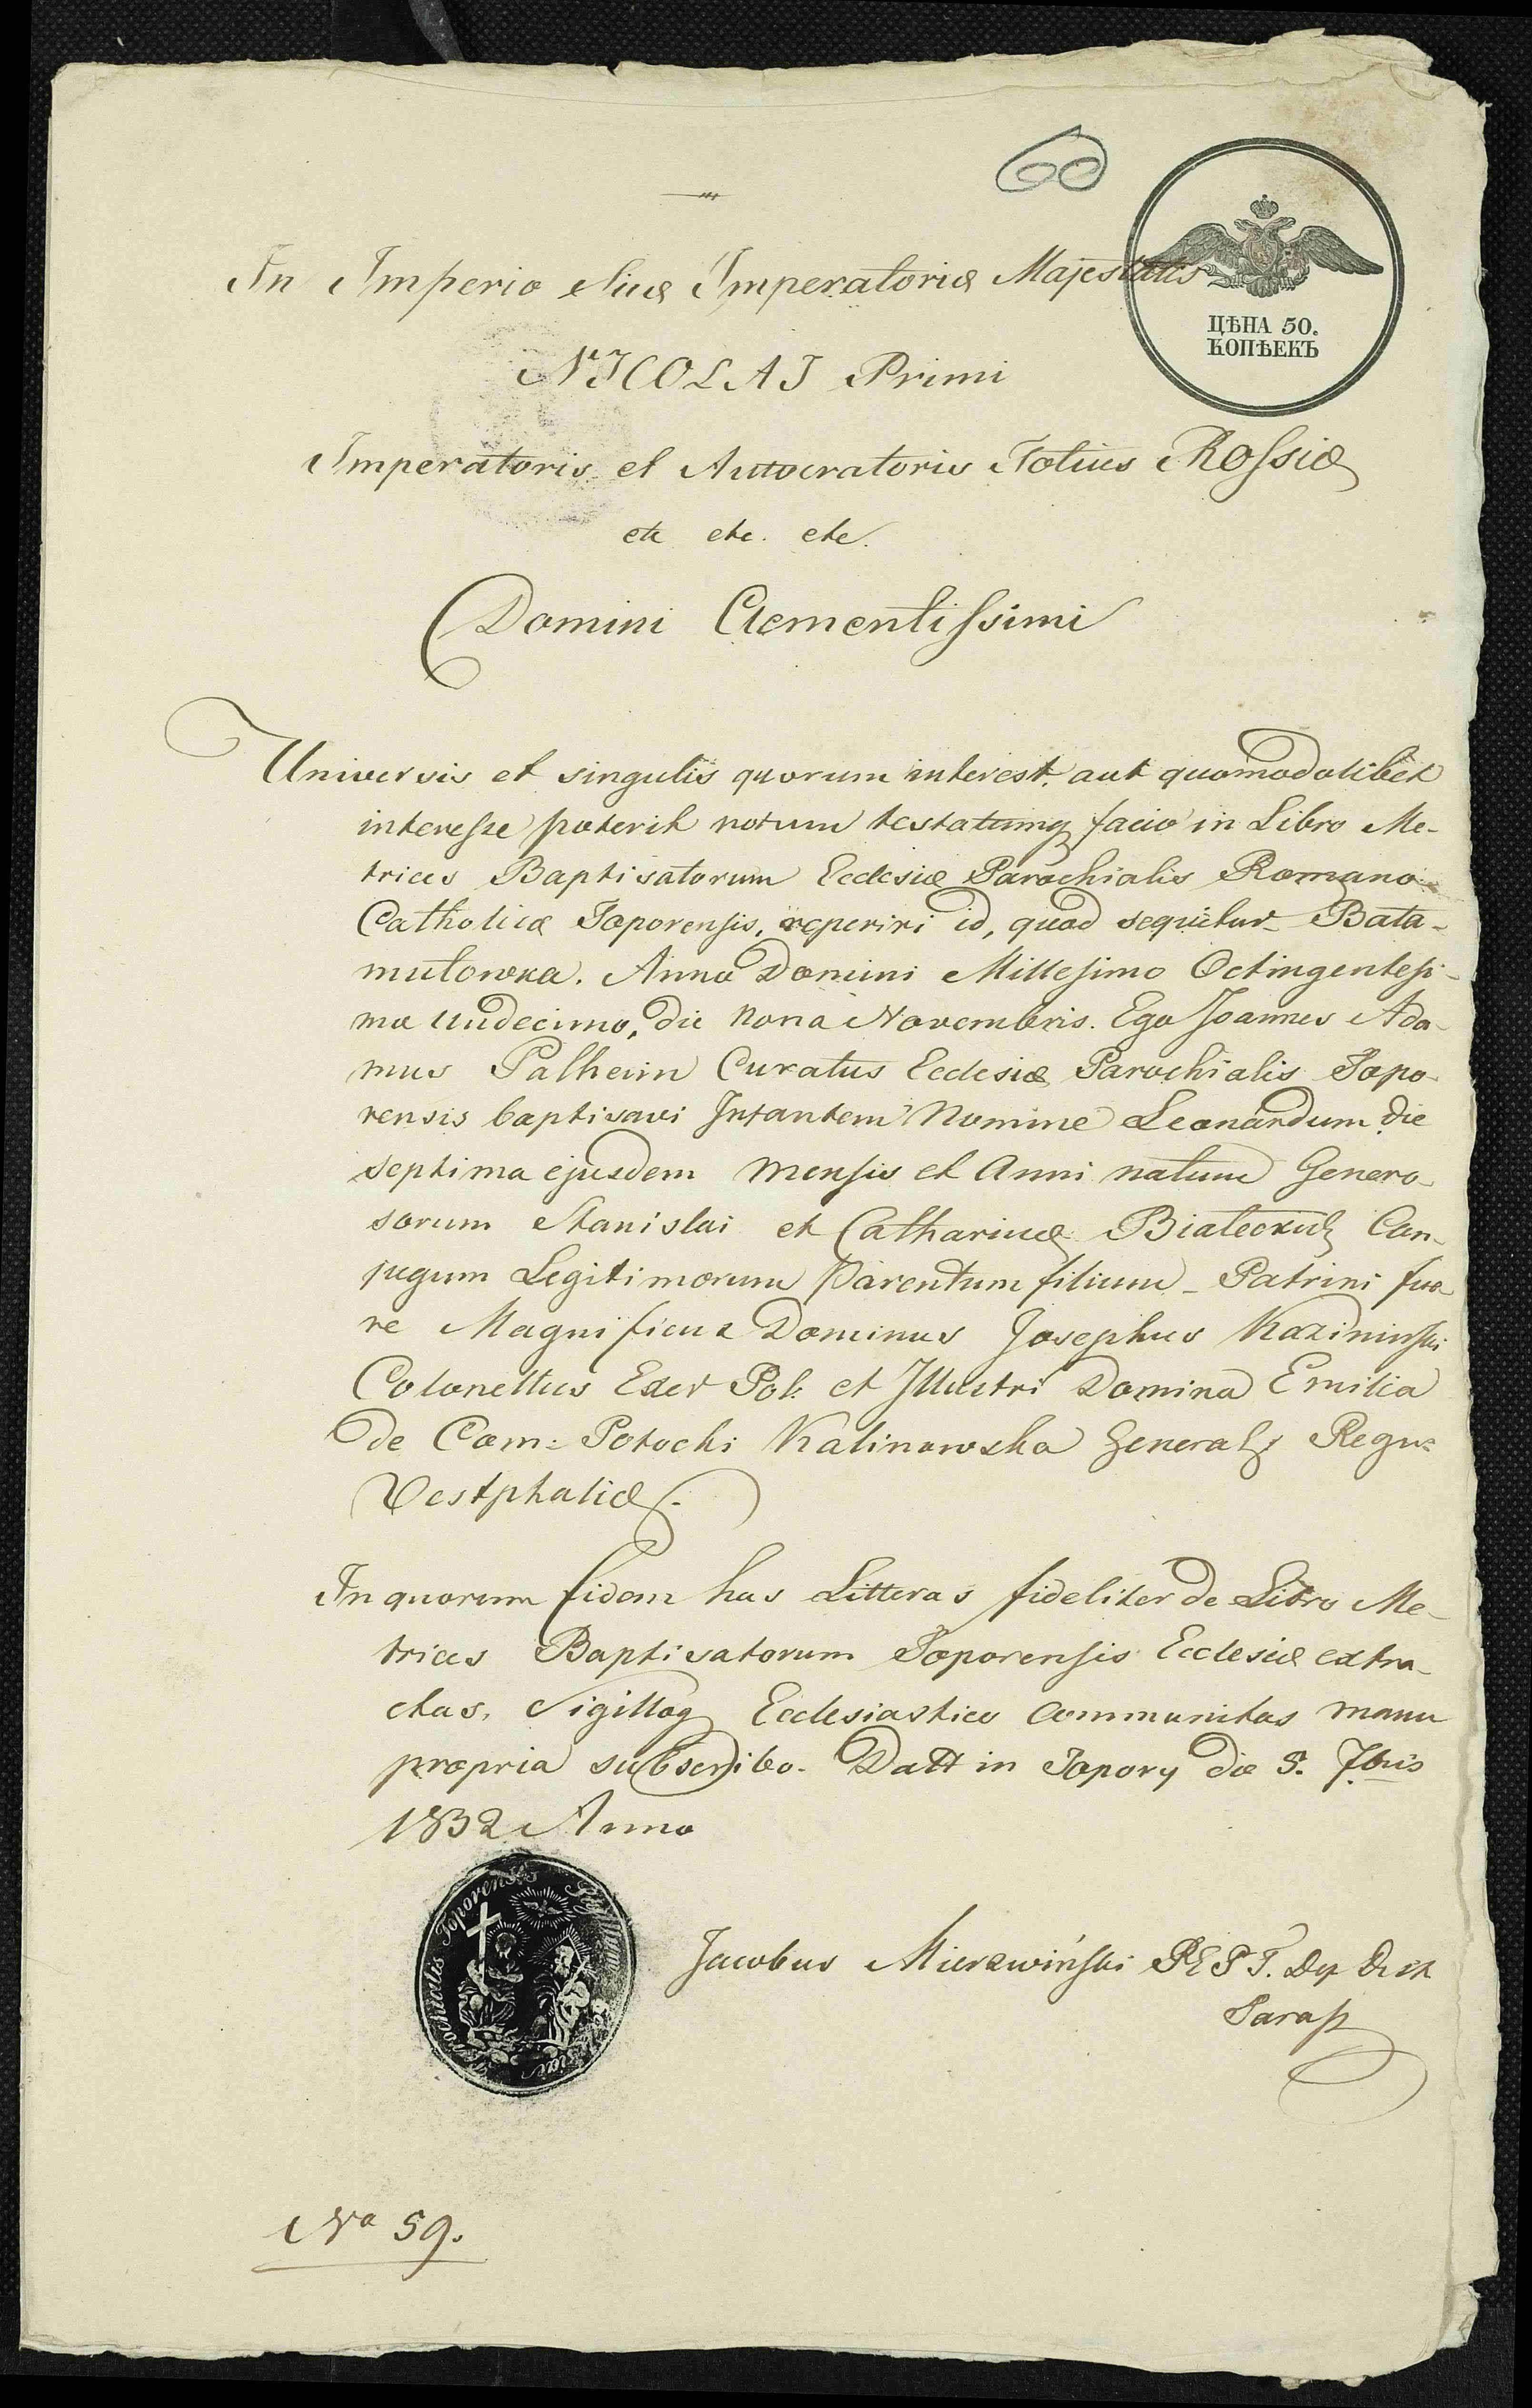 60
In Imperio Suæ Imperatoriæ Majestatis
ЦѢНА 50.
КОПѢЕКЪ
NICOLAI Primi
Imperatoris et Autocratoris Totius Rossiæ
etc etc. etc.
Domini Clementissimi
Universis et singulis quorum interest, aut quomodolibet
interesse poterit notum testatumq facio in Libro Me-
trices Baptisatorum Ecclesiæ Parochialis Romano
Catholicæ Toporensis, reperiri id, quod sequitur Bała-
mutowka. Anno Domini Millesimo Octingentesi-
mo undecimo, die nona Novembris. Ego Joannes Ada-
mus Palheim Curatus Ecclesiæ Parochialis Topo-
rensis baptisavi Infantem Nomine Leonardum die
septima ejusdem Mensis et Anni natum Genero-
sorum Stanislai et Catharinæ Białeckich Con-
jugum Legitimorum Parentum filium - Patrini fue
re Magnificus Dominus Josephus Kaziminski
Colonellus Exer Pol: et Illustri Domina Emilia
de Com: Potocki Kalinowska General Regn:
Vestphaliæ.
In quorum fidem has Litteras fideliter de Libro Me-
trices Baptisatorum Toporensis Ecclesiæ extra-
ctas, Sigilloq Ecclesiastico communitas manu
propria subscribo. Datt in Topory die 5. 7bris
1832 Anno
Parochialis Toporensis Sigillum
Jacobus Mierzwiński P. E. P. T.
No 59.